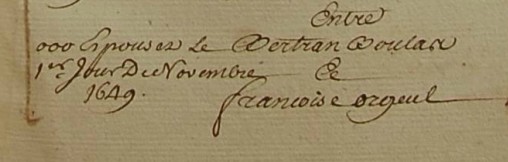 Entre
000 Epousez Le Bertran Doulad
1er Jour De Novembre Et
1649. francoise orgeul